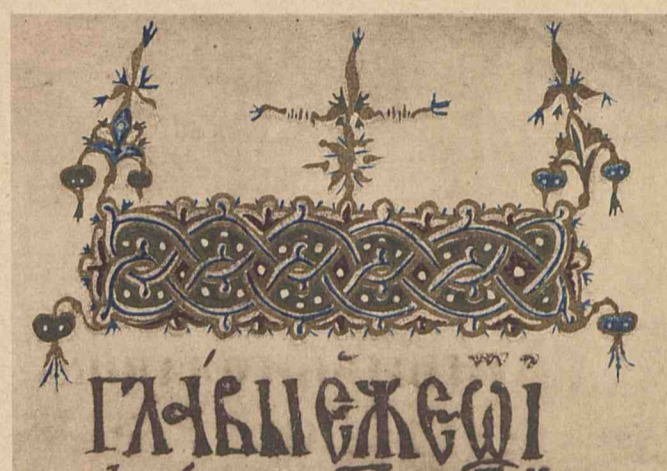 ГЛА́ВЫ Є҆ЖЕѾІ